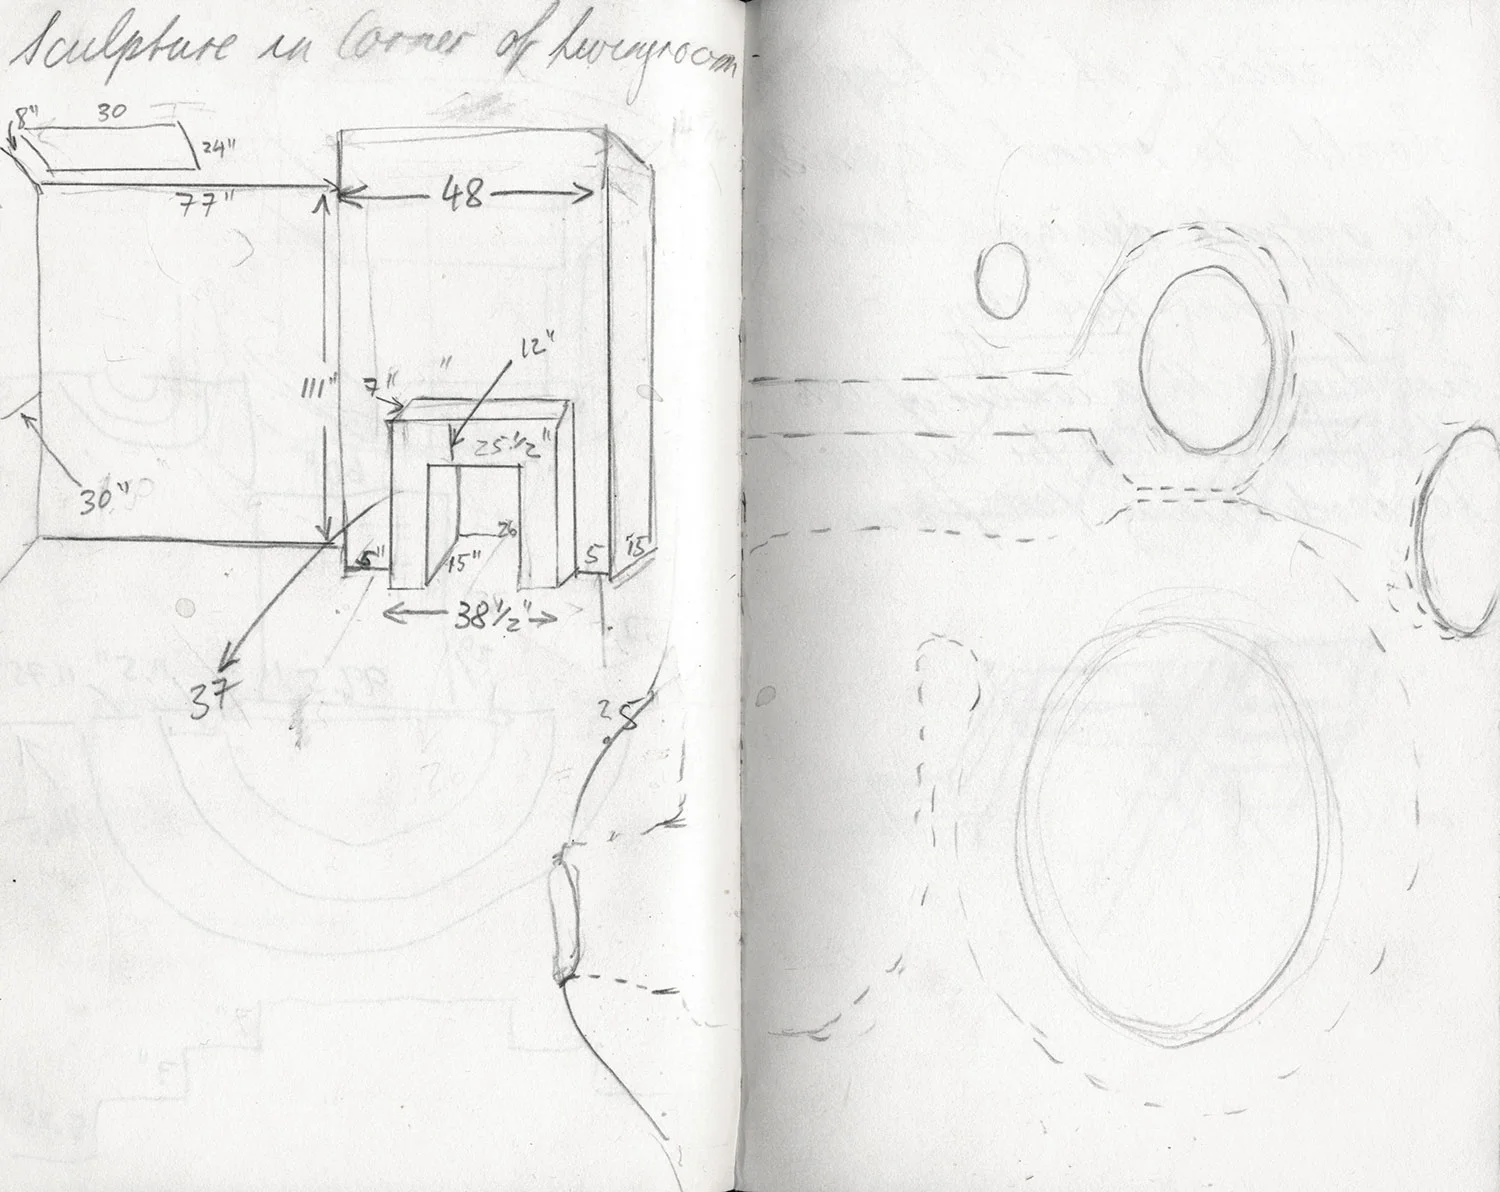 Sculpture in Corner of Livingroom
8"
30
24"
77"
48
12"
111"
7"
"
25 1/2"
30"
26
5"
15"
5
15
38 1/2"
37
25